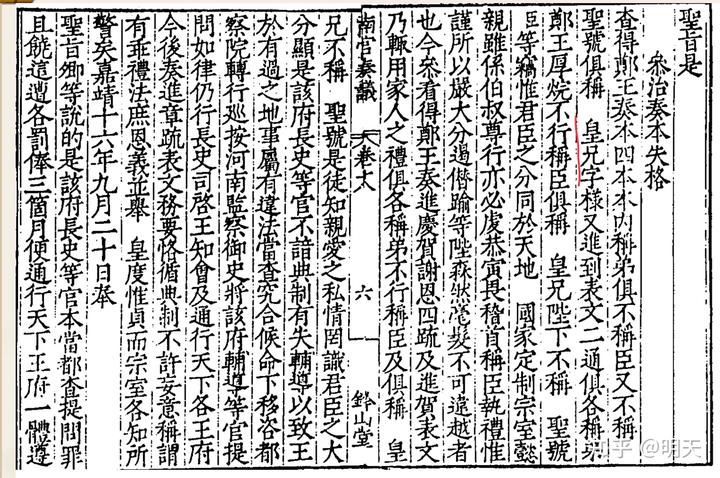 聖旨是
參治奏本失格
查得鄭王奏本四本本內稱弟俱不稱臣又不稱
聖號俱稱　皇兄字樣又進到表文二通俱各稱弟
鄭王厚烷不行稱臣俱稱　皇兄陛下不稱　聖號
臣等竊惟君臣之分同於天地　國家定制宗室懿
親雖係伯叔尊行亦必虔恭寅畏稽首稱臣執禮惟
謹所以嚴大分遏僭踰等陛森然毫髮不可違越者
也今參看得鄭王奏進慶賀謝恩四疏及進賀表文
乃輒用家人之禮俱各稱弟不行稱臣及俱稱　皇
南宮奏議　卷十六　六　鈐山堂
兄不稱　聖號是徒知親愛之私情罔識君臣之大
分顯是該府長史等官不諳典制有失輔導以致王
於有過之地事屬有違法當查究合候命下移咨都
察院轉行巡按河南監察御史將該府輔導等官提
問如律仍行長史司啓王知會及通行天下各王府
今後奏進章疏表文務要恪循典制不許妄意稱謂
有乖禮法庶恩義並舉　皇度惟貞而宗室各知所
警矣嘉靖十六年九月二十日奉
聖旨卿等說的是該府長史等官本當都查提問罪
且饒這遭各罰俸三箇月便通行天下王府一體遵
知乎 @明天